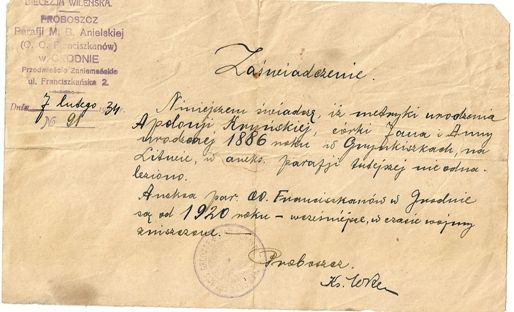 DIECEZJA WILEŃSKA.
PROBOSZCZ
Parafji M. B. Anielskiej
(O. O. Franciszkanów)
w GRODNIE
Przedmieście Zaniemeńskie
ul. Franciszkańska 2.
Dnia 7 lutego 34.
№ 91
Zaświadczenie.
Niniejszem świadczę, iż metryki urodzenia
Apolonji Kryńskiej, córki Jana i Anny
urodzonej 1886 roku w Grynkiszkach, na
Litwie, w aneks. parafji tutejszej nie odna-
leziono.
Aneksa par. OO. Franciszkanów w Grodnie
są od 1920 roku – wcześniejsze, w czasie wojny
zniszczone.
Proboszcz.
Ks.